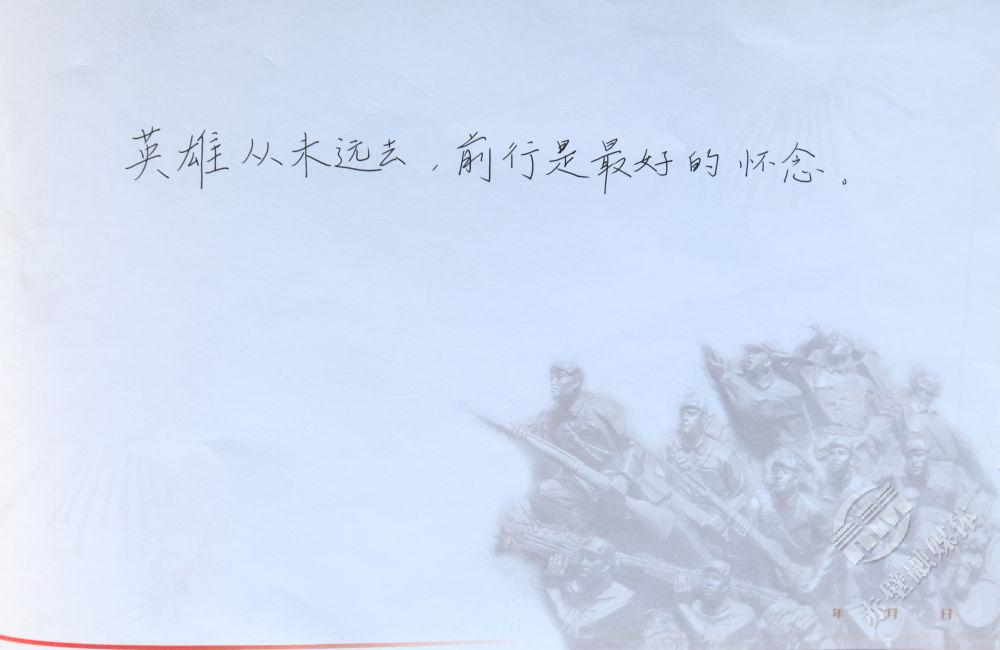 英雄从未远去，前行是最好的怀念。
赤壁融媒体
年 月 日